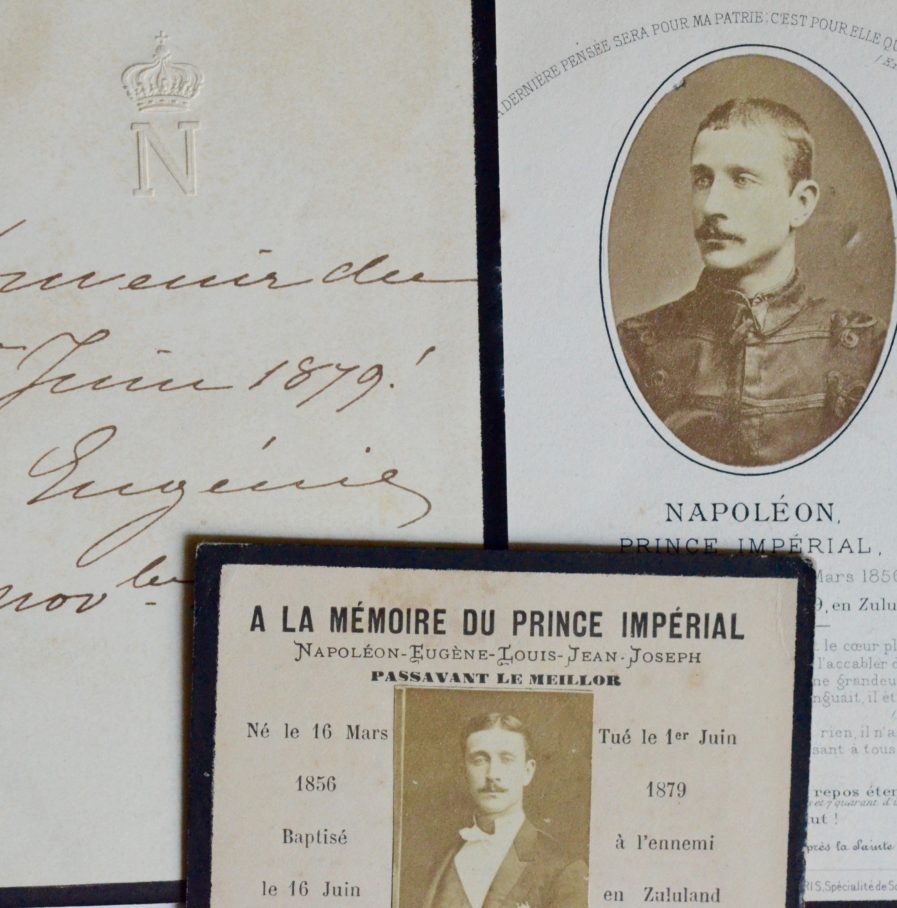 N
Souvenir du
Juin 1879!
Eugénie
nov bre
A DERNIÈRE PENSÉE SERA POUR MA PATRIE; C'EST POUR ELLE QU
NAPOLÉON,
PRINCE IMPÉRIAL,
Mars 1856
9, en Zulu
le cœur pl
l'accabler
ne grandeu
nguait, il ét
rien, il n'a
sant à tous
repos éter
et 7 quarant
ut !
près la Sainte
RIS, Spécialité de
A LA MÉMOIRE DU PRINCE IMPÉRIAL
NAPOLÉON-EUGÈNE-LOUIS-JEAN-JOSEPH
PASSAVANT LE MEILLOR
Né le 16 Mars
1856
Baptisé
le 16 Juin
Tué le 1er Juin
1879
à l'ennemi
en Zaluland